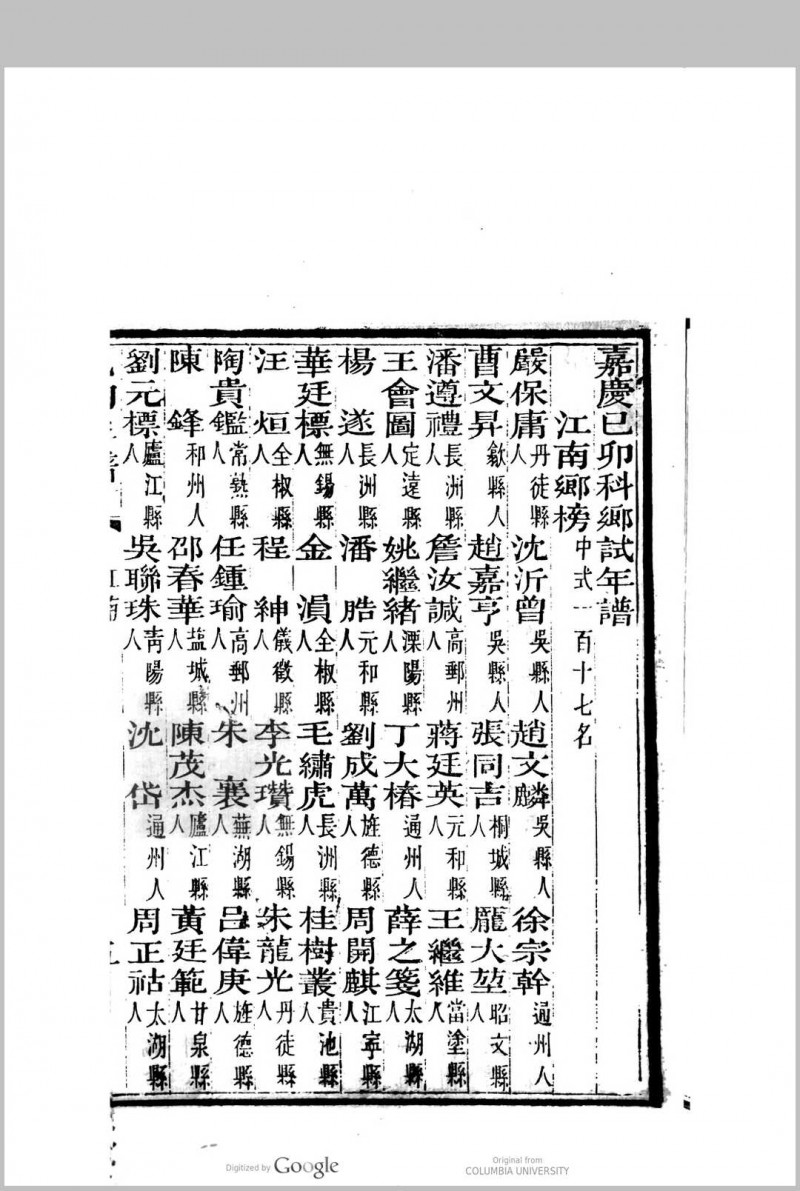 嘉慶己卯科鄉試年譜
江南鄉榜中式一百十七名
嚴保庸丹徒縣人 沈沂曾吳縣人 趙文麟吳縣人 徐宗幹通州人
曹文昇歙縣人 趙嘉亨吳縣人 張同吉桐城縣人 龐大堃昭文縣人
潘遵禮長洲縣人 詹汝諴高郵州人 蔣廷英元和縣人 王繼維當塗縣人
王會圖定遠縣人 姚繼緒溧陽縣人 丁大椿通州人 薛之箋太湖縣人
楊遂長洲縣人 潘晧元和縣人 劉成萬旌德縣人 周開麒江寧縣人
華廷標無錫縣人 金湏全椒縣人 毛繡虎長洲縣人 桂樹叢貴池縣人
汪烜全椒縣人 程紳儀徵縣人 李光瓚無錫縣人 朱龍光丹徒縣人
陶貴鑑常熟縣人 任鍾瑜高郵州人 朱襄蕪湖縣人 呂偉庚旌德縣人
陳鋒和州人 邵春華盐城縣人 陳茂杰廬江縣人 黃廷範甘泉縣人
劉元標廬江縣人 吳聯珠青陽縣人 沈岱通州人 周正祜太湖縣人
Digitized by Google
Original from
COLUMBIA UNIVERSITY